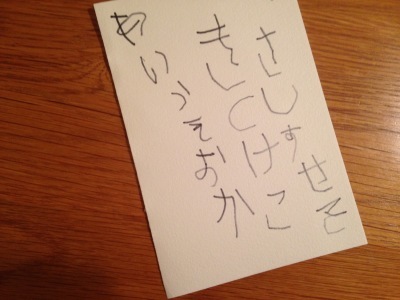 あいうえおか
きしくけこ
さしすせそ